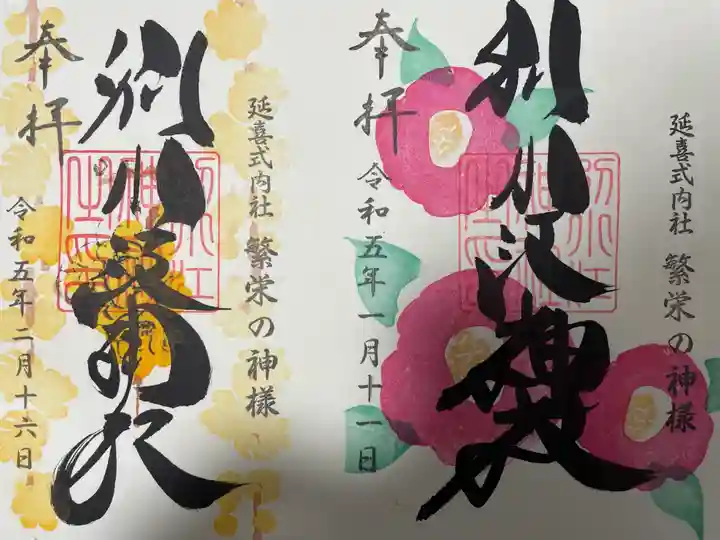 延喜式内社 繁栄の神様
別小江神社
奉拝
令和五年一月十一日
延喜式内社 繁栄の神様
別小江神社
奉拝
令和五年二月十六日